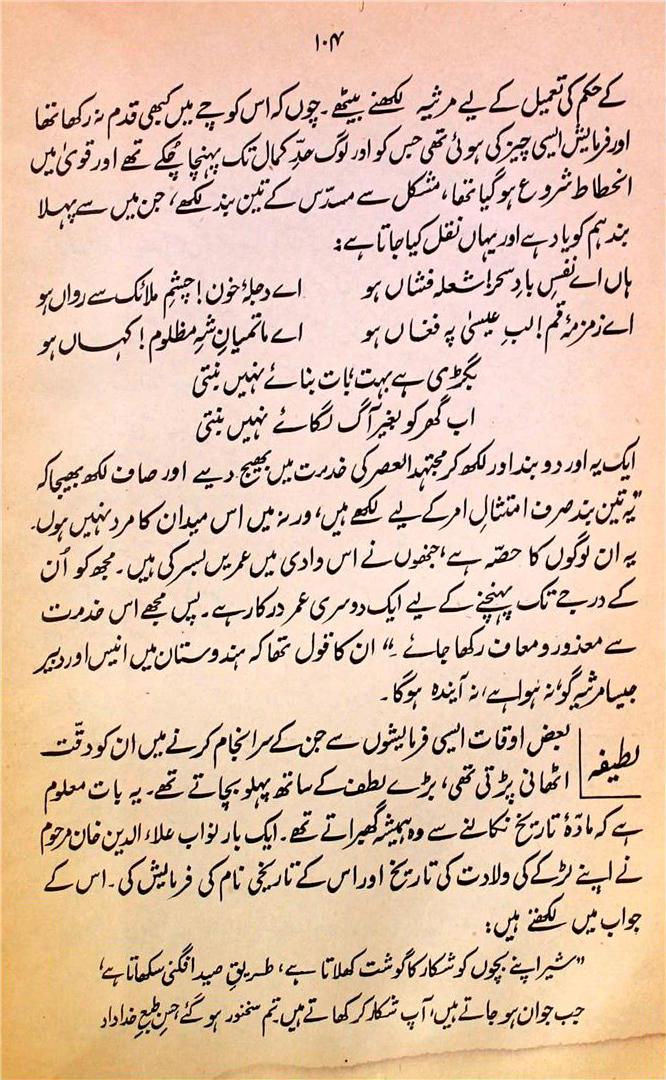 ۱۰۴
کے حکم کی تعمیل کے لیے مرثیہ لکھنے بیٹھے۔ چوں کہ اس کوچے میں کبھی قدم نہ رکھا تھا
اور فرمایش ایسی چیز کی ہوئی تھی جس کو اور لوگ حدِّ کمال تک پہنچا چکے تھے اور قویٰ میں
انحطاط شروع ہو گیا تھا، مشکل سے مسدّس کے تین بند لکھے، جن میں سے پہلا
بند ہم کو یاد ہے اور یہاں نقل کیا جاتا ہے:
ہاں اے نفسِ بادِ سحر! شعلہ فشاں ہو اے دجلۂ خون! چشمِ ملائک سے رواں ہو
اے زمزمۂ قم! لبِ عیسیٰ پہ فغاں ہو اے ماتمیانِ شہِ مظلوم! کہاں ہو
بگڑی ہے بہت، بات بنائے نہیں بنتی
اب گھر کو بغیر آگ لگائے نہیں بنتی
ایک یہ اور دو بند اور لکھ کر مجتہد العصر کی خدمت میں بھیج دیے اور صاف لکھ بھیجا کہ
"یہ تین بند صرف امتثالِ امر کے لیے لکھے ہیں، ورنہ میں اس میدان کا مرد نہیں ہوں۔
یہ ان لوگوں کا حصّہ ہے، جنھوں نے اس وادی میں عمریں بسر کی ہیں۔ مجھ کو اُن
کے درجے تک پہنچنے کے لیے ایک دوسری عمر درکار ہے۔ پس مجھے اس خدمت
سے معذور و معاف رکھا جائے۔" ان کا قول تھا کہ ہندوستان میں انیس اور دبیر
جیسا مرثیہ گو، نہ ہوا ہے، نہ آیندہ ہوگا۔
لطیفہ بعض اوقات ایسی فرمایشوں سے جن کے سرانجام کرنے میں ان کو دقّت
اٹھانی پڑتی تھی، بڑے لطف کے ساتھ پہلو بچاتے تھے۔ یہ بات معلوم
ہے کہ مادّۂ تاریخ نکالنے سے وہ ہمیشہ گھبراتے تھے۔ ایک بار نواب علاء الدین خان مرحوم
نے اپنے لڑکے کی ولادت کی تاریخ اور اس کے تاریخی نام کی فرمایش کی۔ اس کے
جواب میں لکھتے ہیں:
"شیر اپنے بچوں کو شکار کا گوشت کھلاتا ہے، طریقِ صید افگنی سکھاتا ہے،
جب جوان ہو جاتے ہیں، آپ شکار کر کھاتے ہیں۔ تم سخنور ہو گئے، حسنِ طبعِ خداداد